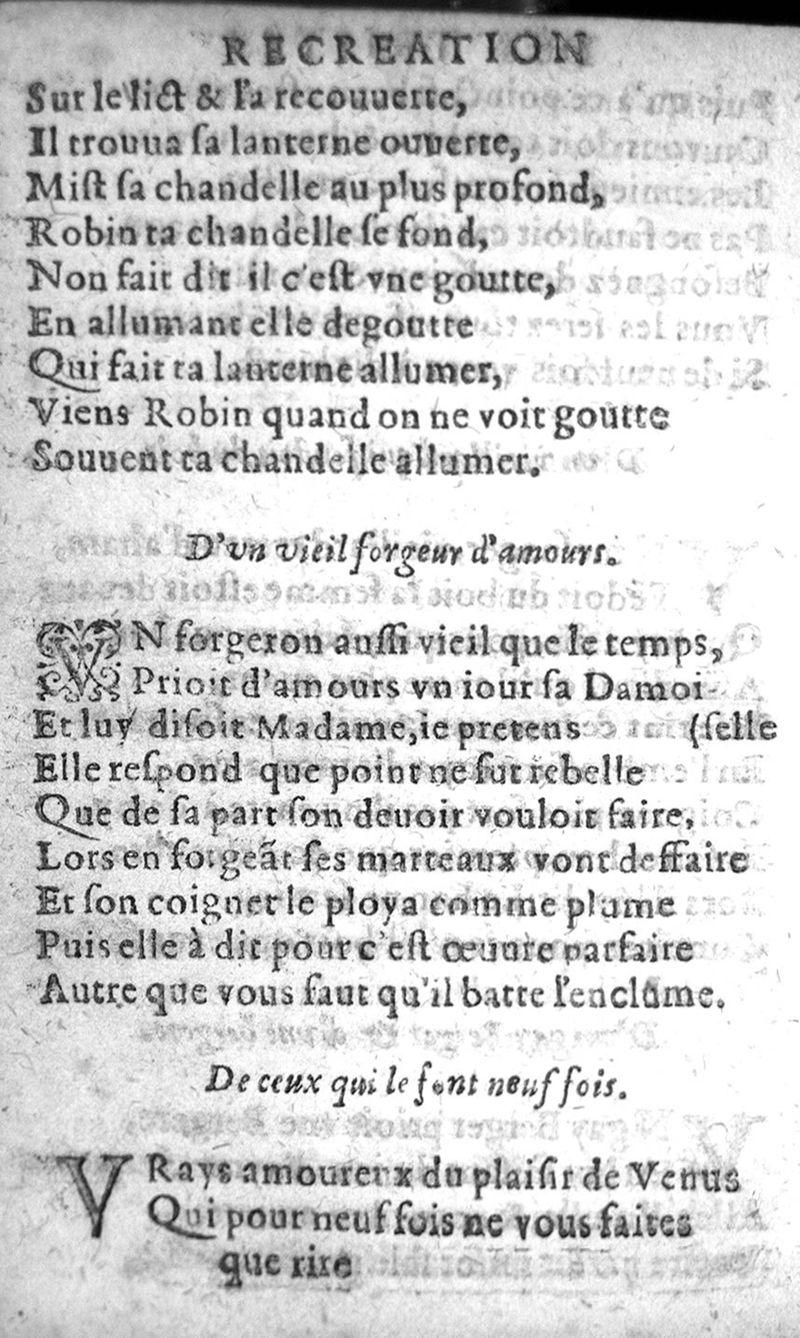 RECREATION
Sur le lict & l'a recouuerte,
Il trouua ſa lanterne ouuerte,
Miſt ſa chandelle au plus profond,
Robin ta chandelle ſe fond,
Non fait dit il c'eſt vne goutte,
En allumant elle degoutte
Qui fait ta lanterne allumer,
Viens Robin quand on ne voit goutte
Souuent ta chandelle allumer.
D'vn vieil forgeur d'amours.
VN forgeron auſſi vieil que le temps,
Prioit d'amours vn iour ſa Damoi-
Et luy diſoit Madame, ie pretens (ſelle
Elle reſpond que point ne fut rebelle
Que de ſa part ſon deuoir vouloit faire,
Lors en forgeãt ſes marteaux vont deffaire
Et ſon coignet le ploya comme plume
Puis elle à dit pour c'eſt œuure parfaire
Autre que vous faut qu'il batte l'enclume.
De ceux qui le font neuf fois.
VRays amoureux du plaiſir de Venus
Qui pour neuf fois ne vous faites
que rire